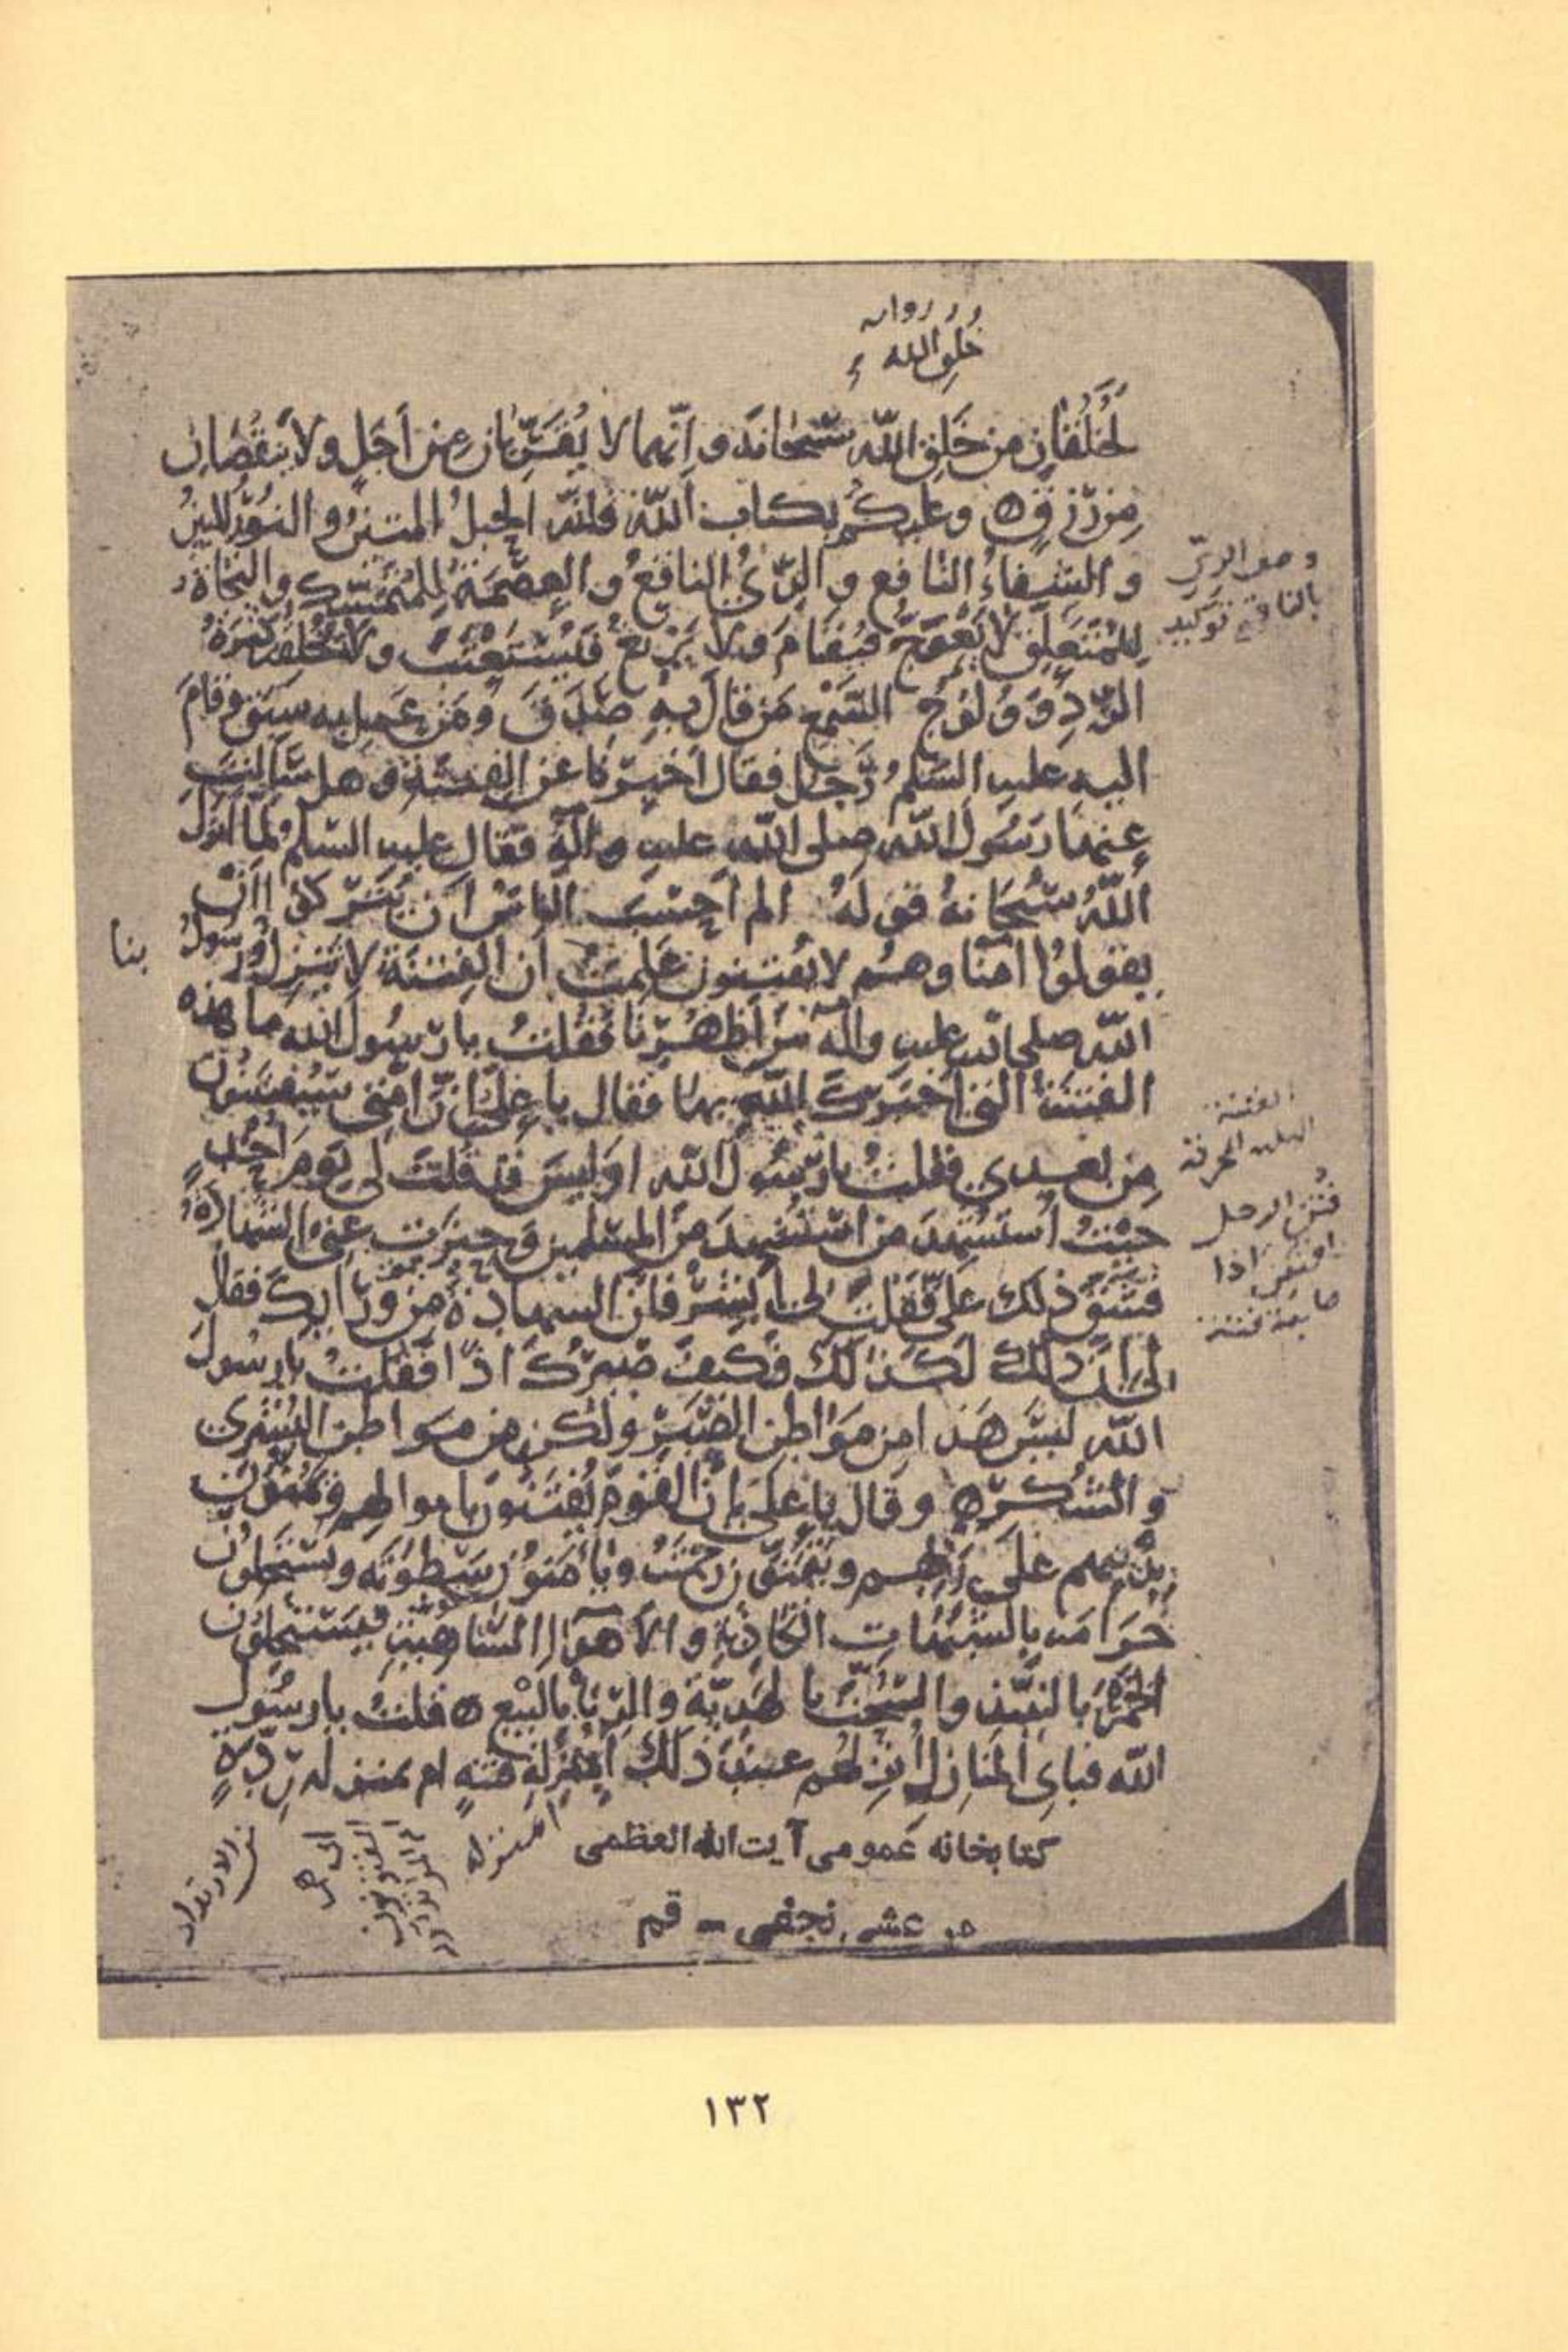 خلق الله
لخلقان من خلق الله سبحانه وانهما لا يقربان من اجل ولا ينقصان
من رزق وعليكم بكتاب الله فانه الحبل المتين والنور المبين
والشفاء النافع والري الناقع والعصمة للمتمسك والنجاة
للمتعلق لا يعوج فيقام ولا يزيغ فيستعتب ولا تخلقه كثرة
الرد وولوج السمع من قال به صدق ومن عمل به سبق وقام
اليه عليه السلم رجل فقال اخبرنا عن الفتنة وهل سالت
عنها رسول الله صلى الله عليه وآله فقال عليه السلم لما انزل
الله سبحانه قوله الم احسب الناس ان يتركوا ان
يقولوا آمنا وهم لا يفتنون علمت ان الفتنة لا تنزل ورسول
بنا
الله صلى الله عليه وآله بين اظهرنا فقلت يا رسول الله ما هذه
الفتنة التي اخبرك الله بها فقال يا علي ان امتي سيفتنون
من بعدي فقلت يا رسول الله اوليس قد قلت لي يوم احد
حيث استشهد من استشهد من المسلمين وحيزت عني الشهادة
فشق ذلك علي فقلت لي ابشر فان الشهادة من ورائك فقال
لي ان ذلك لكذلك فكيف صبرك اذا فقلت يا رسول
الله ليس هذا من مواطن الصبر ولكن من مواطن البشرى
والشكر وقال يا علي ان القوم سيفتنون باموالهم ويمنون
بدينهم على ربهم ويتمنون رحمته ويأمنون سطوته ويستحلون
حرامه بالشبهات الكاذبة والاهواء الساهية فيستحلون
الخمر بالنبيذ والسحت بالهدية والربا بالبيع قلت يا رسول
الله فباي المنازل انزلهم عند ذلك أبمنزلة فتنة ام بمنزلة ردة
وصف الري
بالناقع توكيد
الفتنة
فتن الرجل
افتتن اذا
اصابته فتنة
المنزلة
من الارتداد
كتابخانه عمومى آيت الله العظمى
مرعشى نجفى - قم
١٣٢